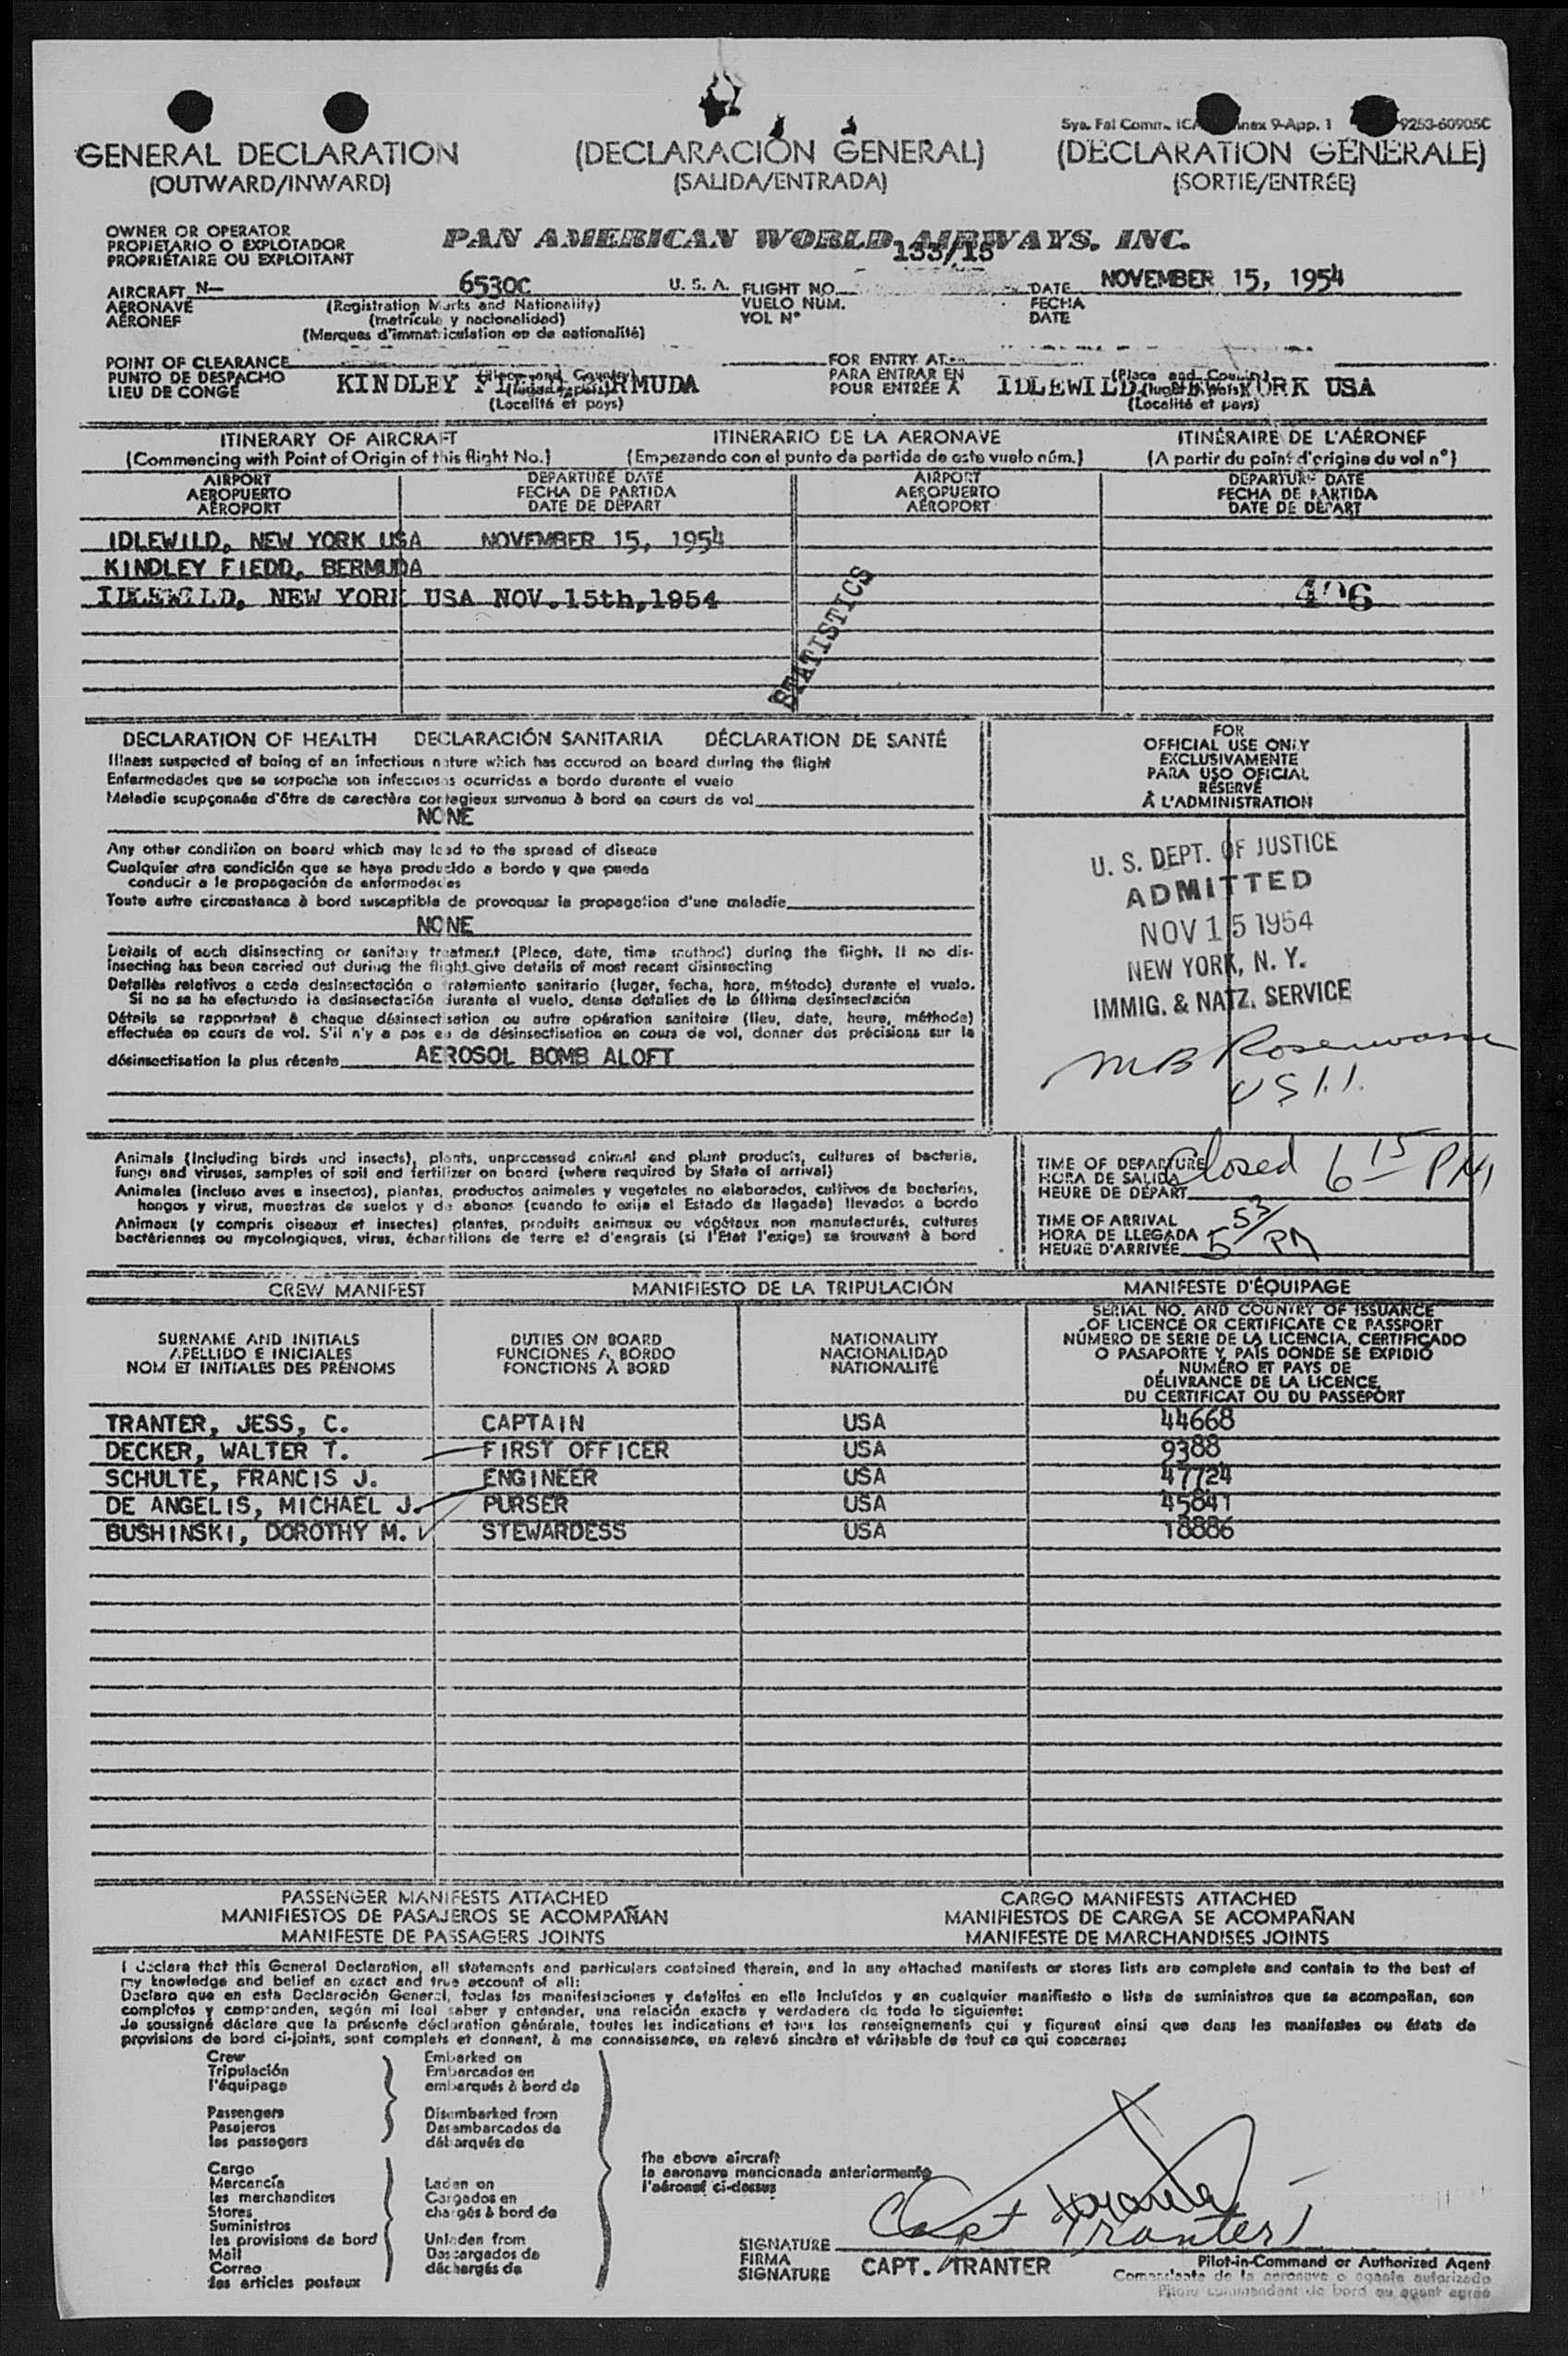 Sys. Fal Comm. Annex 9-App. 1 9253-60905C
GENERAL DECLARATION (DECLARACIÓN GENERAL) (DECLARATION GÉNÉRALE)
(OUTWARD/INWARD) (SALIDA/ENTRADA) (SORTIE/ENTRÉE)
OWNER OR OPERATOR
PROPIETARIO O EXPLOTADOR
PROPRIÉTAIRE OU EXPLOITANT
PAN AMERICAN WORLD AIRWAYS, INC.
133/15
AIRCRAFT N— 6530C U. S. A. FLIGHT NO. DATE NOVEMBER 15, 1954
AERONAVE (Registration Marks and Nationality) VUELO NÚM. FECHA
AÉRONEF (matrícula y nacionalidad) VOL Nº DATE
(Marques d'immatriculation et de nationalité)
POINT OF CLEARANCE FOR ENTRY AT
PUNTO DE DESPACHO (Place and Country) PARA ENTRAR EN (Place and Country)
LIEU DE CONGÉ KINDLEY FIELD BERMUDA POUR ENTRÉE À IDLEWILD, NEW YORK USA
(Localité et pays) (Localité et pays)
ITINERARY OF AIRCRAFT ITINERARIO DE LA AERONAVE ITINÉRAIRE DE L'AÉRONEF
(Commencing with Point of Origin of this flight No.) (Empezando con el punto de partida de este vuelo núm.) (A partir du point d'origine du vol nº)
AIRPORT DEPARTURE DATE AIRPORT DEPARTURE DATE
AEROPUERTO FECHA DE PARTIDA AEROPUERTO FECHA DE PARTIDA
AÉROPORT DATE DE DÉPART AÉROPORT DATE DE DÉPART
IDLEWILD, NEW YORK USA NOVEMBER 15, 1954
KINDLEY FIEDD, BERMUDA
IDLEWILD, NEW YORK USA NOV.15th,1954
STATISTICS
DECLARATION OF HEALTH DECLARACIÓN SANITARIA DÉCLARATION DE SANTÉ
Illness suspected of being of an infectious nature which has occured on board during the flight
Enfermedades que se sospecha son infecciosas ocurridas a bordo durante el vuelo
Maladie soupçonnée d'être de caractère contagieux survenue à bord en cours de vol
NONE
Any other condition on board which may lead to the spread of disease
Cualquier otra condición que se haya producido a bordo y que pueda
conducir a la propagación de enfermedades
Toute autre circonstance à bord susceptible de provoquer la propagation d'une maladie
NONE
Details of each disinsecting or sanitary treatment (Place, date, time method) during the flight. If no dis-
insecting has been carried out during the flight give details of most recent disinsecting
Detalles relativos a cada desinsectación o tratamiento sanitario (lugar, fecha, hora, método) durante el vuelo.
Si no se ha efectuado la desinsectación durante el vuelo, dense detalles de la última desinsectación
Détails se rapportant à chaque désinsectisation ou autre opération sanitaire (lieu, date, heure, méthode)
effectuée en cours de vol. S'il n'y a pas eu de désinsectisation en cours de vol, donner des précisions sur la
désinsectisation la plus récente AEROSOL BOMB ALOFT
FOR
OFFICIAL USE ONLY
EXCLUSIVAMENTE
PARA USO OFICIAL
RÉSERVÉ
À L'ADMINISTRATION
U. S. DEPT. OF JUSTICE
ADMITTED
NOV 15 1954
NEW YORK, N. Y.
IMMIG. & NATZ. SERVICE
Animals (including birds and insects), plants, unprocessed animal and plant products, cultures of bacteria,
fungi and viruses, samples of soil and fertilizer on board (where required by State of arrival)
Animales (incluso aves e insectos), plantas, productos animales y vegetales no elaborados, cultivos de bacterias,
hongos y virus, muestras de suelos y de abonos (cuando lo exija el Estado de llegada) llevados a bordo
Animaux (y compris oiseaux et insectes) plantes, produits animaux ou végétaux non manufacturés, cultures
bactériennes ou mycologiques, virus, échantillons de terre et d'engrais (si l'État l'exige) se trouvant à bord
TIME OF DEPARTURE Closed 6 15 PM
HORA DE SALIDA
HEURE DE DÉPART
TIME OF ARRIVAL
HORA DE LLEGADA 5 53/ PM
HEURE D'ARRIVÉE
CREW MANIFEST MANIFIESTO DE LA TRIPULACIÓN MANIFESTE D'ÉQUIPAGE
SURNAME AND INITIALS
APELLIDO E INICIALES
NOM ET INITIALES DES PRÉNOMS
DUTIES ON BOARD
FUNCIONES A BORDO
FONCTIONS À BORD
NATIONALITY
NACIONALIDAD
NATIONALITÉ
SERIAL NO. AND COUNTRY OF ISSUANCE
OF LICENCE OR CERTIFICATE OR PASSPORT
NÚMERO DE SERIE DE LA LICENCIA, CERTIFICADO
O PASAPORTE Y PAÍS DONDE SE EXPIDIÓ
NUMÉRO ET PAYS DE
DÉLIVRANCE DE LA LICENCE,
DU CERTIFICAT OU DU PASSEPORT
TRANTER, JESS, C. CAPTAIN USA 44668
DECKER, WALTER T. FIRST OFFICER USA 9388
SCHULTE, FRANCIS J. ENGINEER USA 47724
DE ANGELIS, MICHAEL J. PURSER USA 45841
BUSHINSKI, DOROTHY M. STEWARDESS USA 18886
PASSENGER MANIFESTS ATTACHED CARGO MANIFESTS ATTACHED
MANIFIESTOS DE PASAJEROS SE ACOMPAÑAN MANIFIESTOS DE CARGA SE ACOMPAÑAN
MANIFESTE DE PASSAGERS JOINTS MANIFESTE DE MARCHANDISES JOINTS
I declare that this General Declaration, all statements and particulars contained therein, and in any attached manifests or stores lists are complete and contain to the best of
my knowledge and belief an exact and true account of all:
Declaro que en esta Declaración General, todas las manifestaciones y detalles en ella incluídos y en cualquier manifiesto o lista de suministros que se acompañan, son
completos y comprenden, según mi leal saber y entender, una relación exacta y verdadera de todo lo siguiente:
Je soussigné déclare que la présente déclaration générale, toutes les indications et tous les renseignements qui y figurent ainsi que dans les manifestes ou états de
provisions de bord ci-joints, sont complets et donnent, à ma connaissance, un relevé sincère et véritable de tout ce qui concerne:
Crew Embarked on
Tripulación Embarcados en
l'équipage embarqués à bord de
Passengers Disembarked from
Pasajeros Desembarcados de
les passagers débarqués de
Cargo
Mercancía Laden on
les marchandises Cargados en
Stores chargés à bord de
Suministros
les provisions de bord Unladen from
Mail Descargados de
Correo déchargés de
les articles postaux
the above aircraft
la aeronave mencionada anteriormente
l'aéronef ci-dessus
Capt Tranter
SIGNATURE
FIRMA
SIGNATURE
CAPT. TRANTER
Pilot-in-Command or Authorized Agent
Comandante de la aeronave o agente autorizado
Pilote commandant de bord ou agent agréé